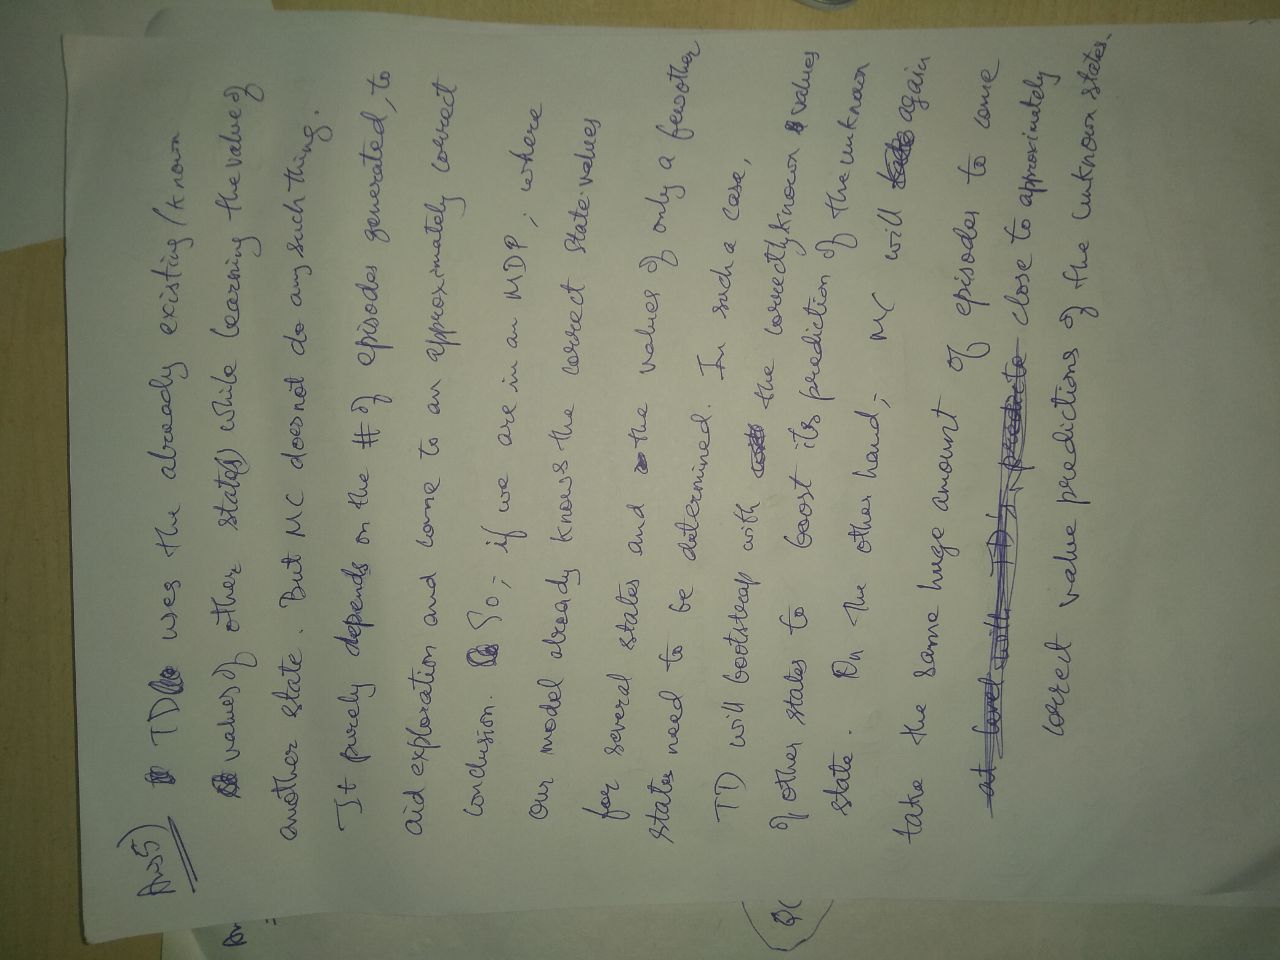 Ans 5) TD uses the already existing / known
values of other state(s) while learning the value of
another state. But MC does not do any such thing.
It purely depends on the # of episodes generated, to
aid exploration and come to an approximately correct
conclusion. So, if we are in an MDP, where
our model already knows the correct state-values
for several states and the values of only a few other
states need to be determined. In such a case,
TD will bootstrap with the correctly known values
of other states to boost its prediction of the unknown
state. On the other hand, MC will again
take the same huge amount of episodes to come
at level with TD's close to approximately
correct value predictions of the unknown states.